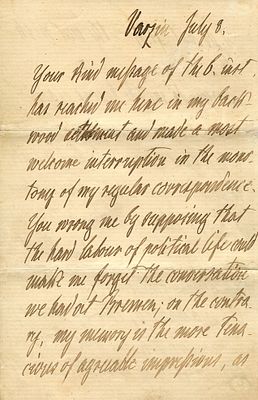 Varzin July 8.
Your kind message of the 6. inst.
has reached me here in my back-
wood settlement and made a most
welcome interruption in the mono-
tony of my regular correspondence.
You wrong me by supposing that
the hard labour of political life could
make me forget the conversation
we had at Bremen; on the contra-
ry, my memory is the more tena-
cious of agreeable impressions, as